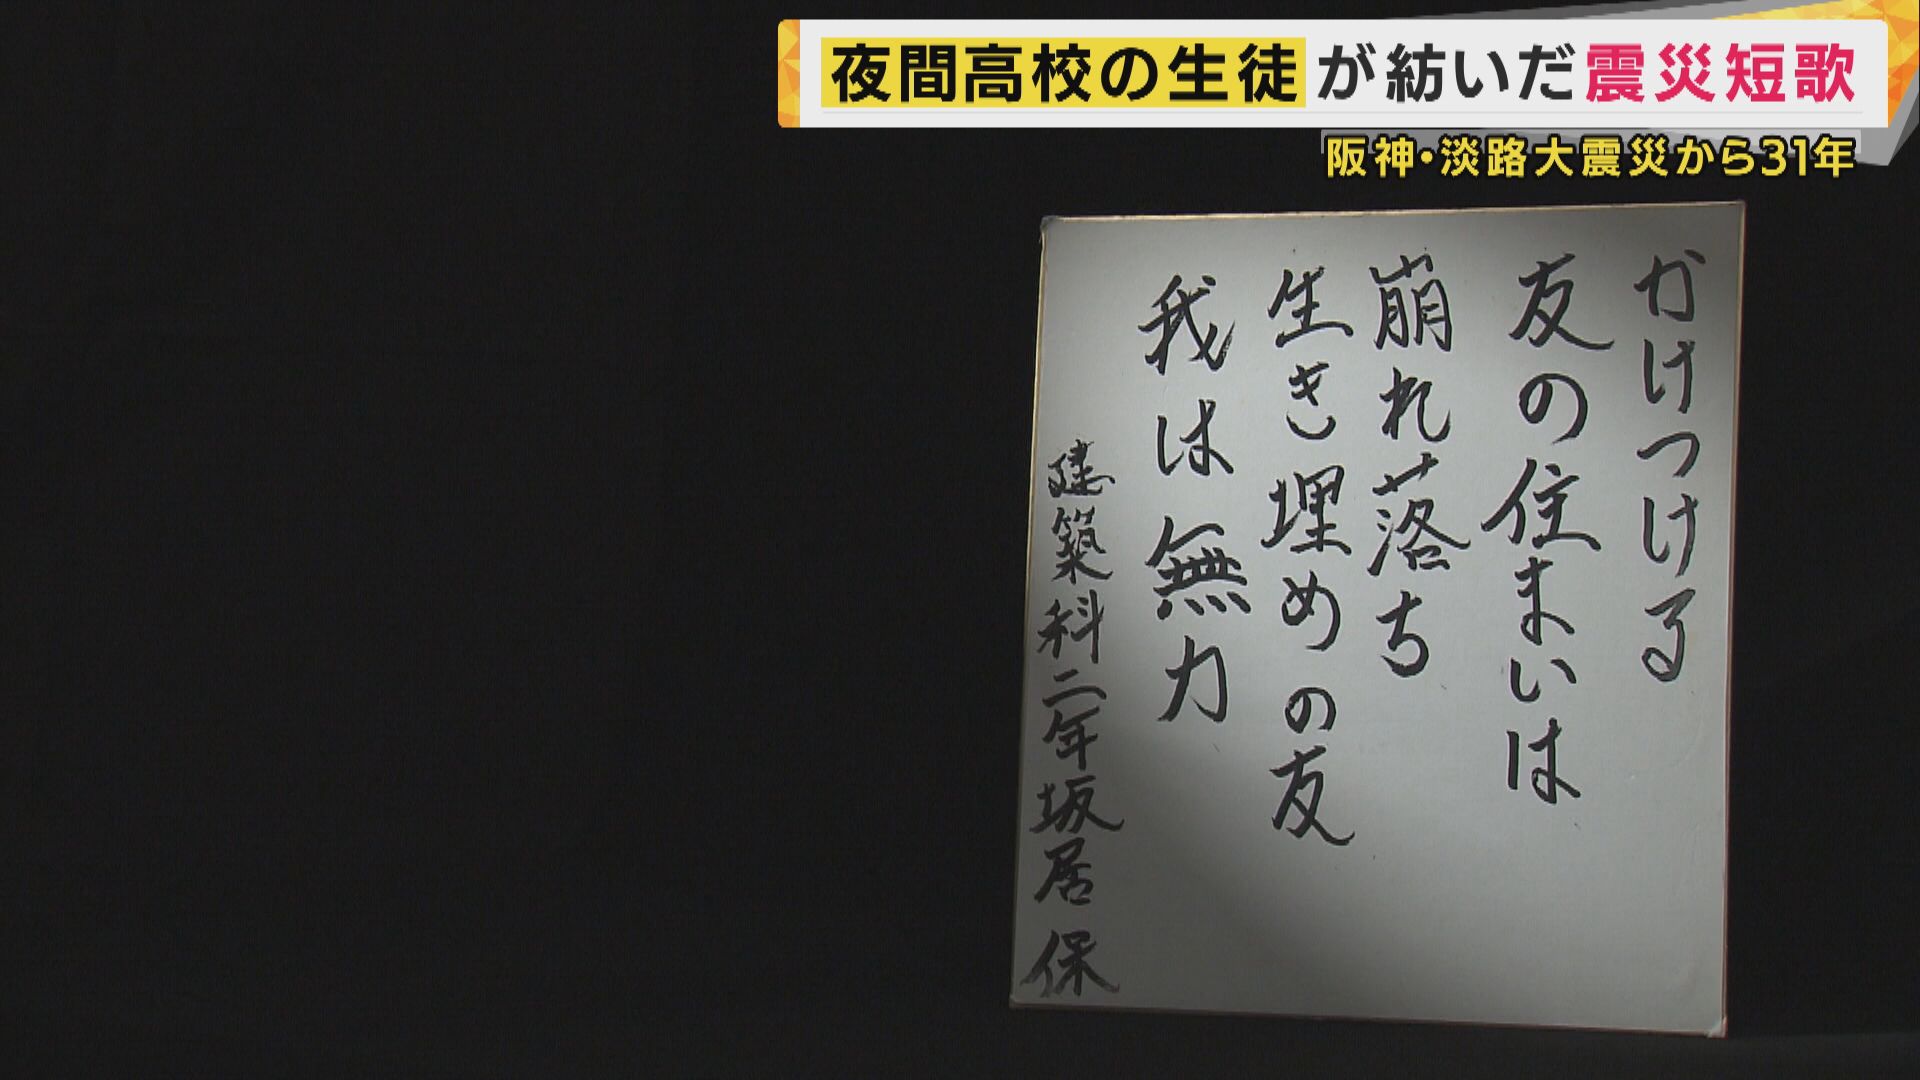 夜間高校の生徒が紡いだ震災短歌
阪神・淡路大震災から31年
かけつける
友の住まいは
崩れ落ち
生き埋めの友
我は無力
建築科二年坂居保